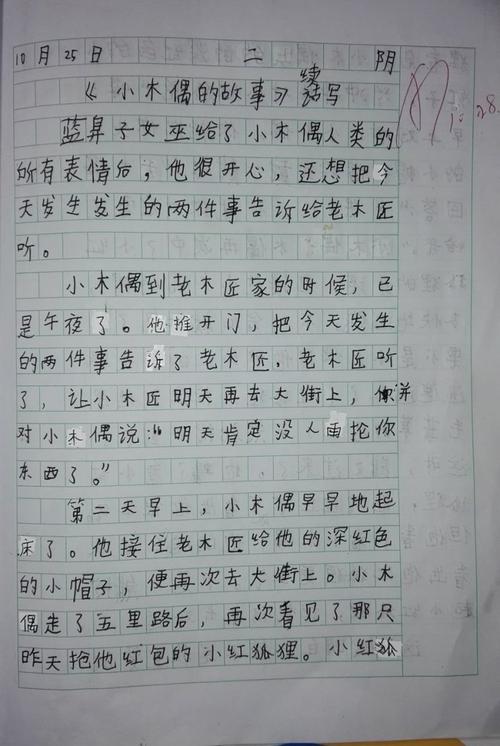 10月25日 二 阴
《小木偶的故事》续写
蓝鼻子女巫给了小木偶人类的
所有表情后，他很开心，还想把今
天发生发生的两件事告诉给老木匠
听。
小木偶到老木匠家的时候，已
是午夜了。他推开门，把今天发生
的两件事告诉了老木匠，老木匠听
了，让小木匠明天再去大街上，并
对小木偶说：“明天肯定没人再抢你
东西了。”
第二天早上，小木偶早早地起
床了。他接住老木匠给他的深红色
的小帽子，便再次去大街上。小木
偶走了五里路后，再次看见了那只
昨天抢他红包的小红狐狸。小红狐
10.28